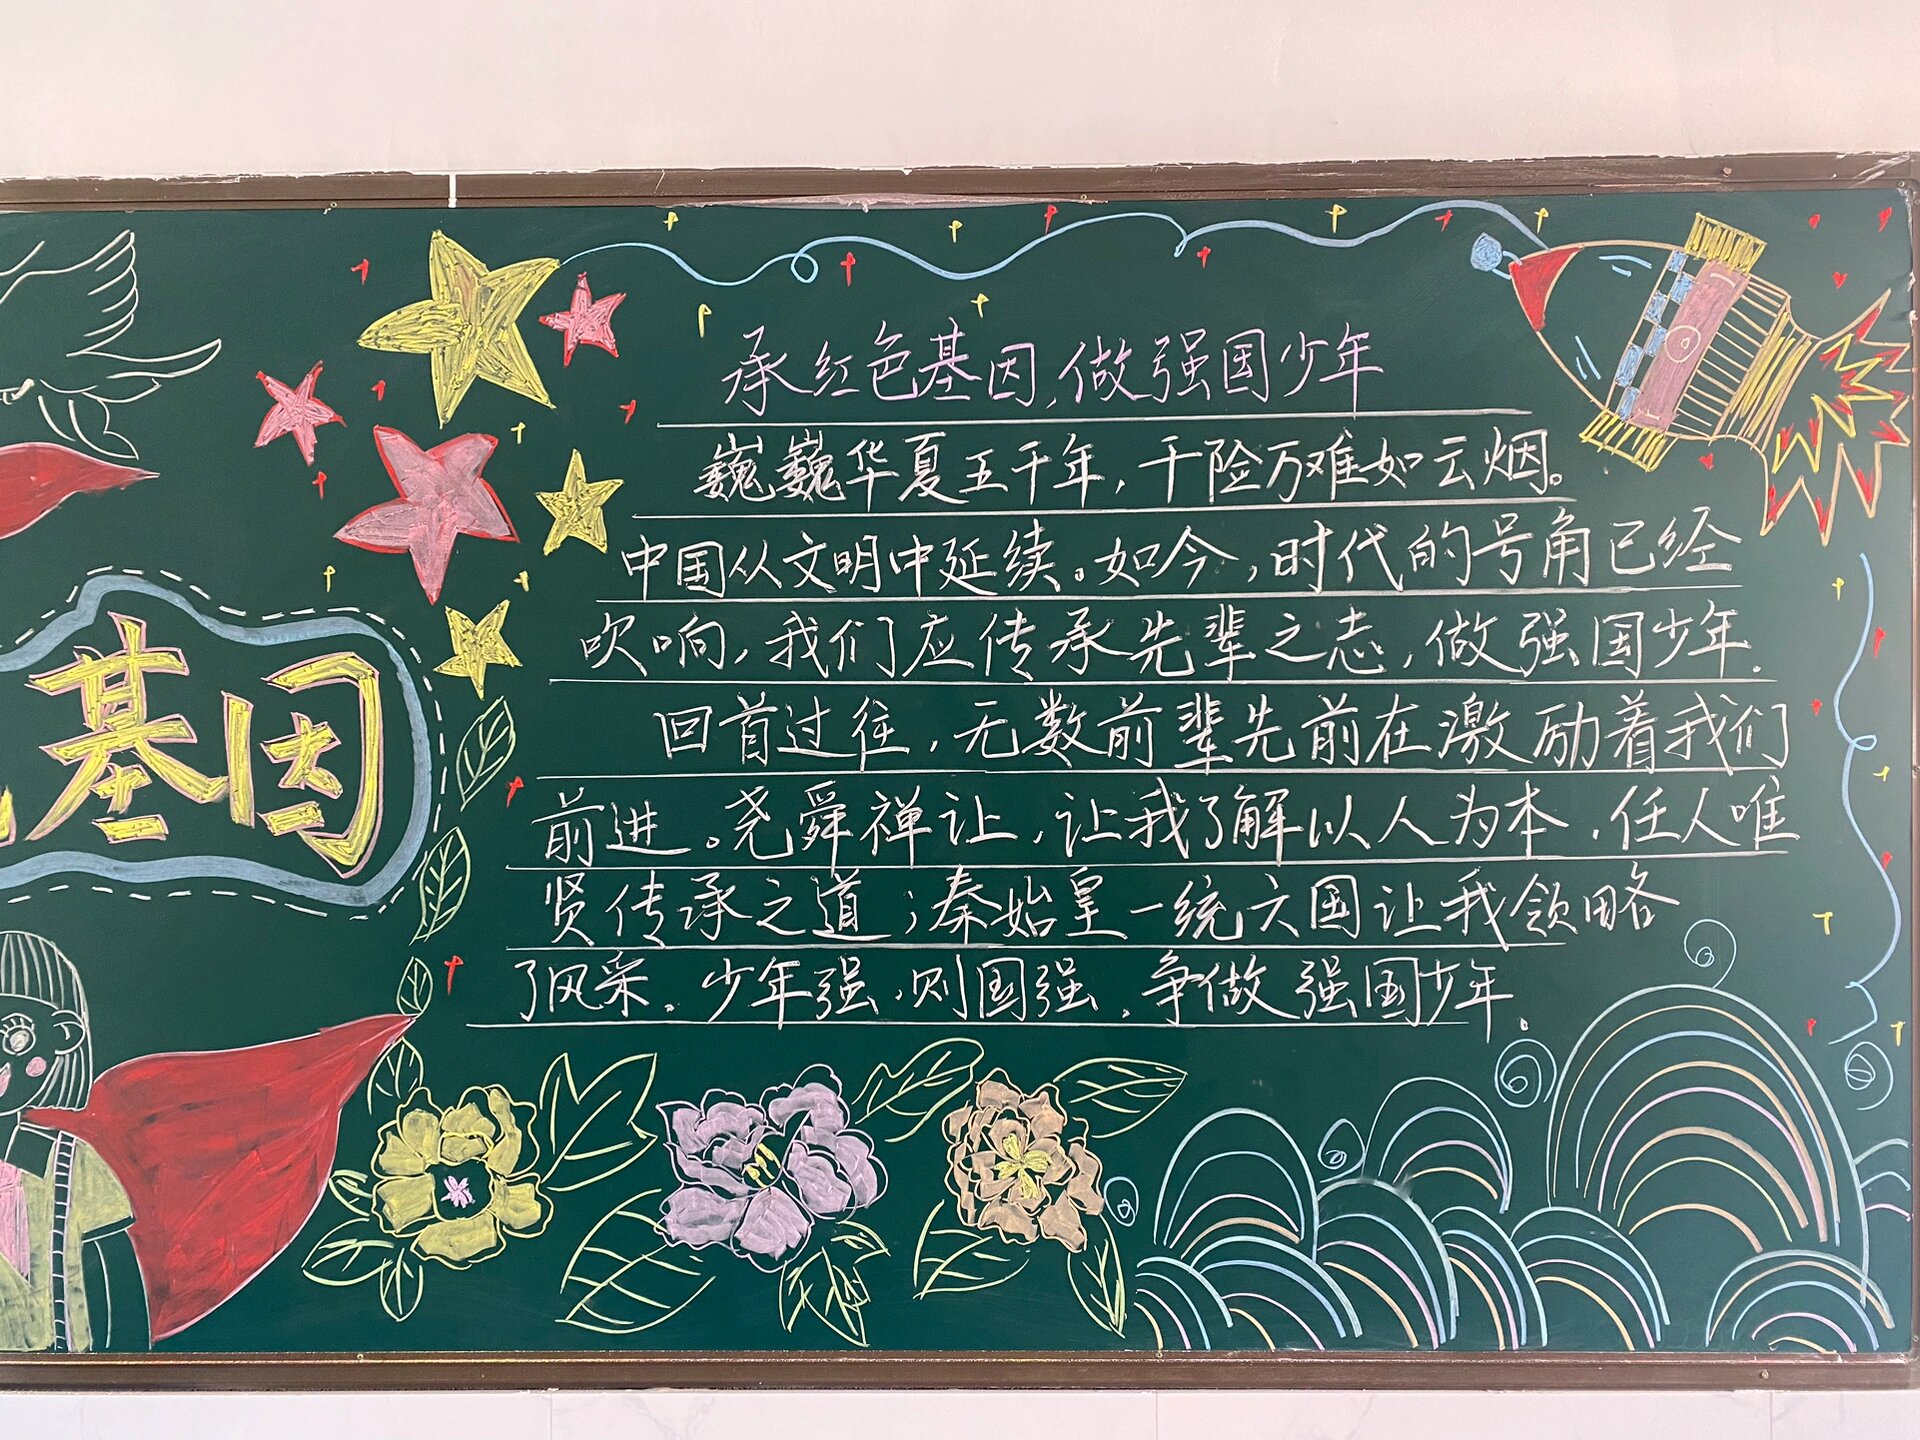 基因
承红色基因,做强国少年
巍巍华夏五千年,千险万难如云烟。
中国从文明中延续。如今,时代的号角已经
吹响,我们应传承先辈之志,做强国少年.
回首过往,无数前辈先前在激励着我们
前进。尧舜禅让,让我了解以人为本,任人唯
贤传承之道;秦始皇一统六国让我领略
了风采。少年强,则国强。争做强国少年.